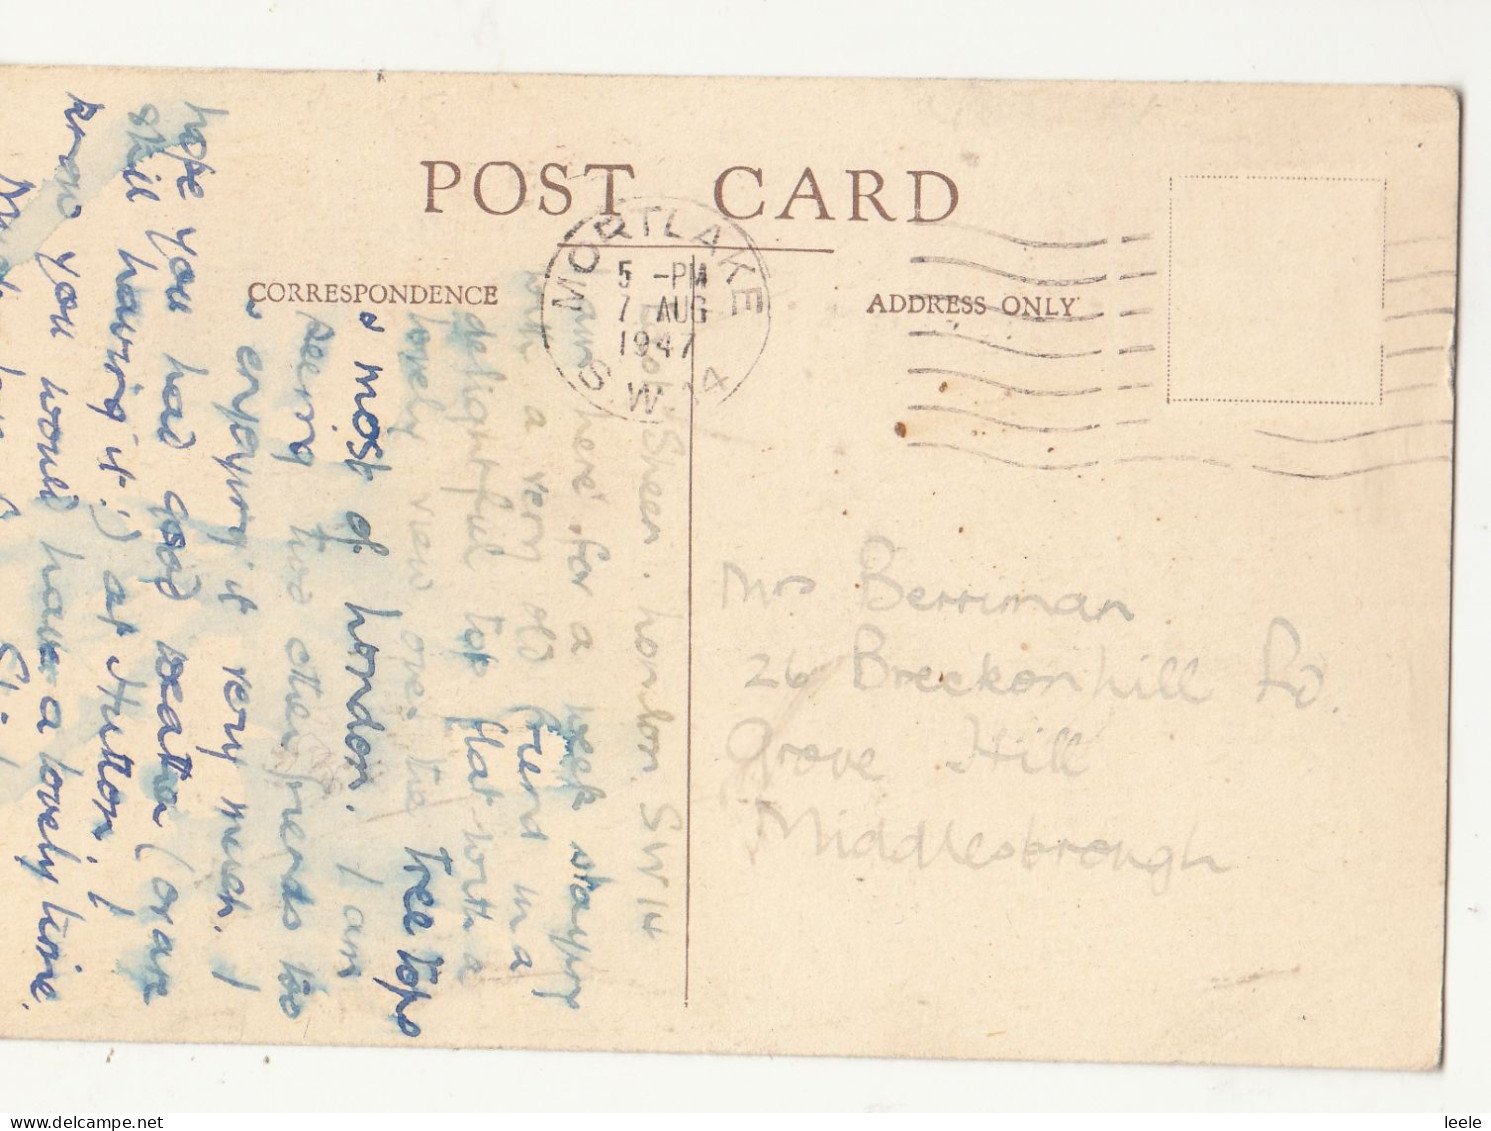 POST CARD
CORRESPONDENCE
ADDRESS ONLY
MORTLAKE
5 -PM
7 AUG
1947
S.W.14
Mrs Berriman
26 Breckonhill Rd.
Grove Hill
Middlesbrough
Sheen. London. SW14
I am here for a week staying
with a very old friend in a
delightful top flat with a
lovely view over the tree tops
& most of London. I am
seeing two other friends too
& enjoying it very much. I
hope you had good weather (or are
still having it!) at Hutton. I
know you would have a lovely time.
Much love from
leele